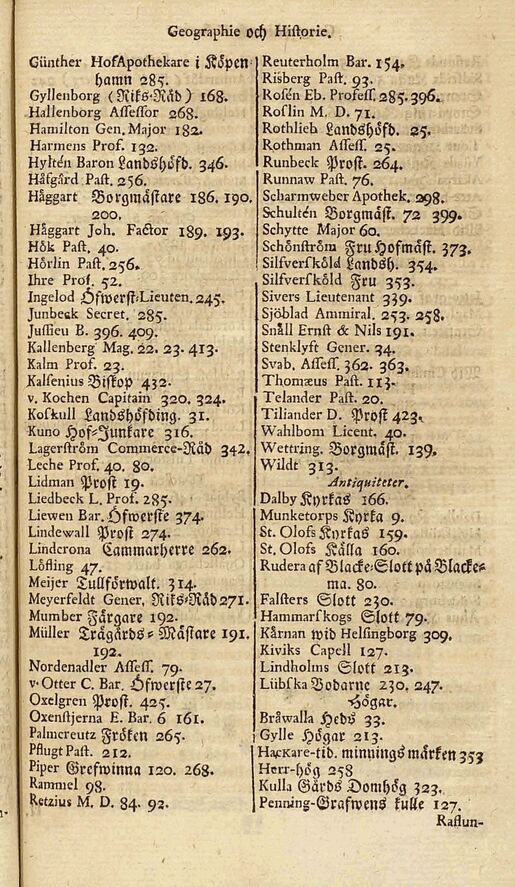 Geographie och Historie.
Günther HofApothekare i Köpen
hamn 285.
Gyllenborg (Riks-Råd) 168.
Hallenborg Assessor 268.
Hamilton Gen. Major 182.
Harmens Prof. 132.
Hyltén Baron Landshöfd. 346.
Håfgård Past. 256.
Håggart Borgmästare 186. 190.
200.
Håggart Joh. Factor 189. 193.
Hök Past. 40.
Hörlin Past. 256.
Ihre Prof. 52.
Ingelod Öfwerst-Lieuten. 245.
Junbeck Secret. 285.
Jussieu B. 396. 409.
Kallenberg Mag. 22. 23. 413.
Kalm Prof. 23.
Kalsenius Biskop 432.
v. Kochen Capitain 320. 324.
Koskull Landshöfding. 31.
Kuno Hof-Junkare 316.
Lagerström Commerce-Råd 342.
Leche Prof. 40. 80.
Lidman Prost 19.
Liedbeck L. Prof. 285.
Liewen Bar. Öfwerste 374.
Lindewall Prost 274.
Lindcrona Cammarherre 262.
Löfling 47.
Meijer Tullförwalt. 314.
Meyerfeldt Gener. Riks-Råd 271.
Mumber Färgare 192.
Müller Trägårds-Mästare 191.
192.
Nordenadler Assess. 79.
v. Otter C. Bar. Öfwerste 27.
Oxelgren Prost. 425.
Oxenstjerna E. Bar. 6 161.
Palmcreutz Fröken 265.
Pflugt Past. 212.
Piper Grefwinna 120. 268.
Rammel 98.
Retzius M. D. 84. 92.
Reuterholm Bar. 154.
Risberg Past. 93.
Rosén Eb. Profess. 285. 396.
Roslin M. D. 71.
Rothlieb Landshöfd. 25.
Rothman Assess. 25.
Runbeck Prost. 264.
Runnaw Past. 76.
Scharmweber Apothek. 298.
Schultén Borgmäst. 72 399.
Schytte Major 60.
Schönström Fru Hofmäst. 373.
Silfversköld Landsh. 354.
Silfversköld Fru 353.
Sivers Lieutenant 339.
Sjöblad Ammiral. 253. 258.
Snåll Ernst & Nils 191.
Stenklyft Gener. 34.
Svab, Assess. 362. 363.
Thomæus Past. 113.
Telander Past. 20.
Tiliander D. Prost 423.
Wahlbom Licent. 40.
Wettring. Borgmäst. 139.
Wildt 313.
Antiquiteter.
Dalby Kyrkas 166.
Munketorps Kyrka 9.
St. Olofs Kyrkas 159.
St. Olofs Källa 160.
Rudera af Blacke-Slott på Blacke-
ma. 80.
Falsters Slott 230.
Hammarskogs Slott 79.
Kårnan wid Helsingborg 309.
Kiviks Capell 127.
Lindholms Slott 213.
Lübska Bodarne 230. 247.
Högar.
Bråwalla Heds 33.
Gylle Högar 213.
Hackare-tid. minnings märken 353
Herr-hög 258
Kulla Gårds Domhög 323.
Penning-Grafwens kulle 127.
Raslun-